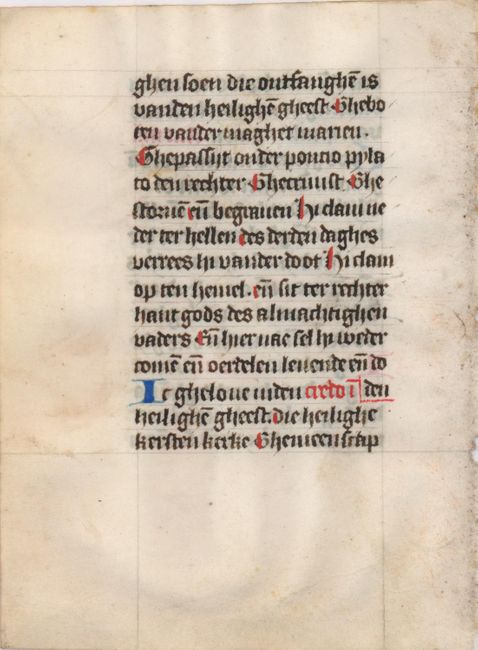 ghen soen die ontfanghē is
vanden heilighē gheest Ghebo
ren vander maghet marien.
Ghepassijt onder poncio pyla
to den rechter Ghecruust Ghe
storuē eñ begrauen Hi clam ne
der ter hellen des derden daghes
verrees hi vander doot Hi clam
op ten hemel. eñ sit ter rechter
hant gods des almachtighen
vaders Eñ hier nae sel hi weder
comē eñ oerdelen leuende eñ do
Ic gheloue inden credo ī den
heilighē gheest. die heilighe
kersten kerke Ghemeenscap